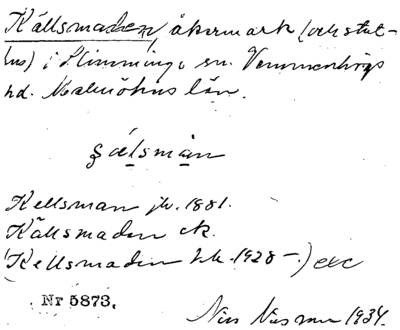 Källsmaden, åkermark (och stat-
hus) i Slimminge sn. Vemmenhögs
hd. Malmöhus län.
Kellsman jb. 1881.
Källsmaden ek.
(Kellsmaden hk. 1928 -.) exc
Nr 5873.
1934.